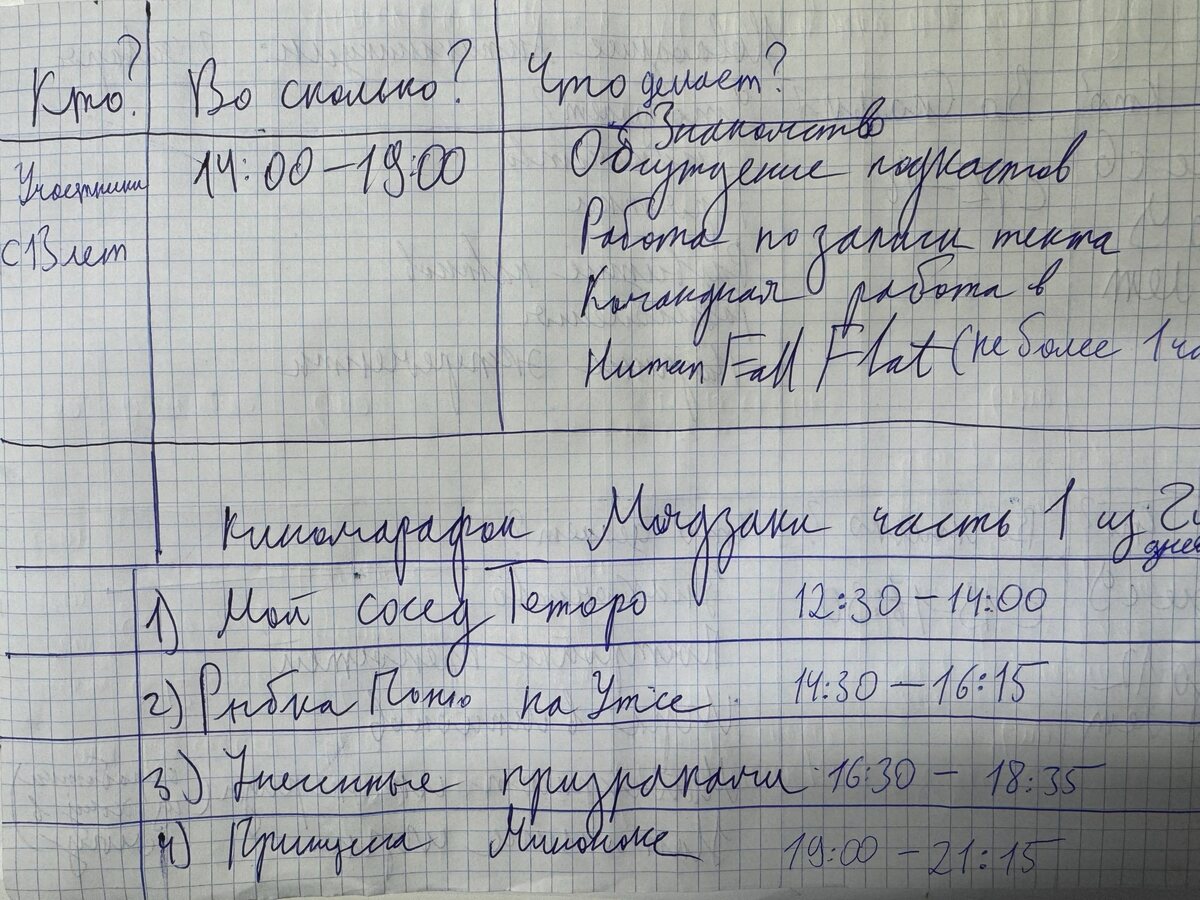 Кто? Во сколько? Что делает?
Знакомство
Участники 14:00 – 19:00 Обсуждение подкастов
с 13 лет Работа по записи текта
Командная работа в
Human Fall Flat (не более 1 ча
Киномарафон Миядзаки часть 1 из 2
дней
1) Мой сосед Тоторо 12:30 – 14:00
2) Рыбка Поню на Утёсе 14:30 – 16:15
3) Унесённые призраками 16:30 – 18:35
4) Принцесса Мононоке 19:00 – 21:15